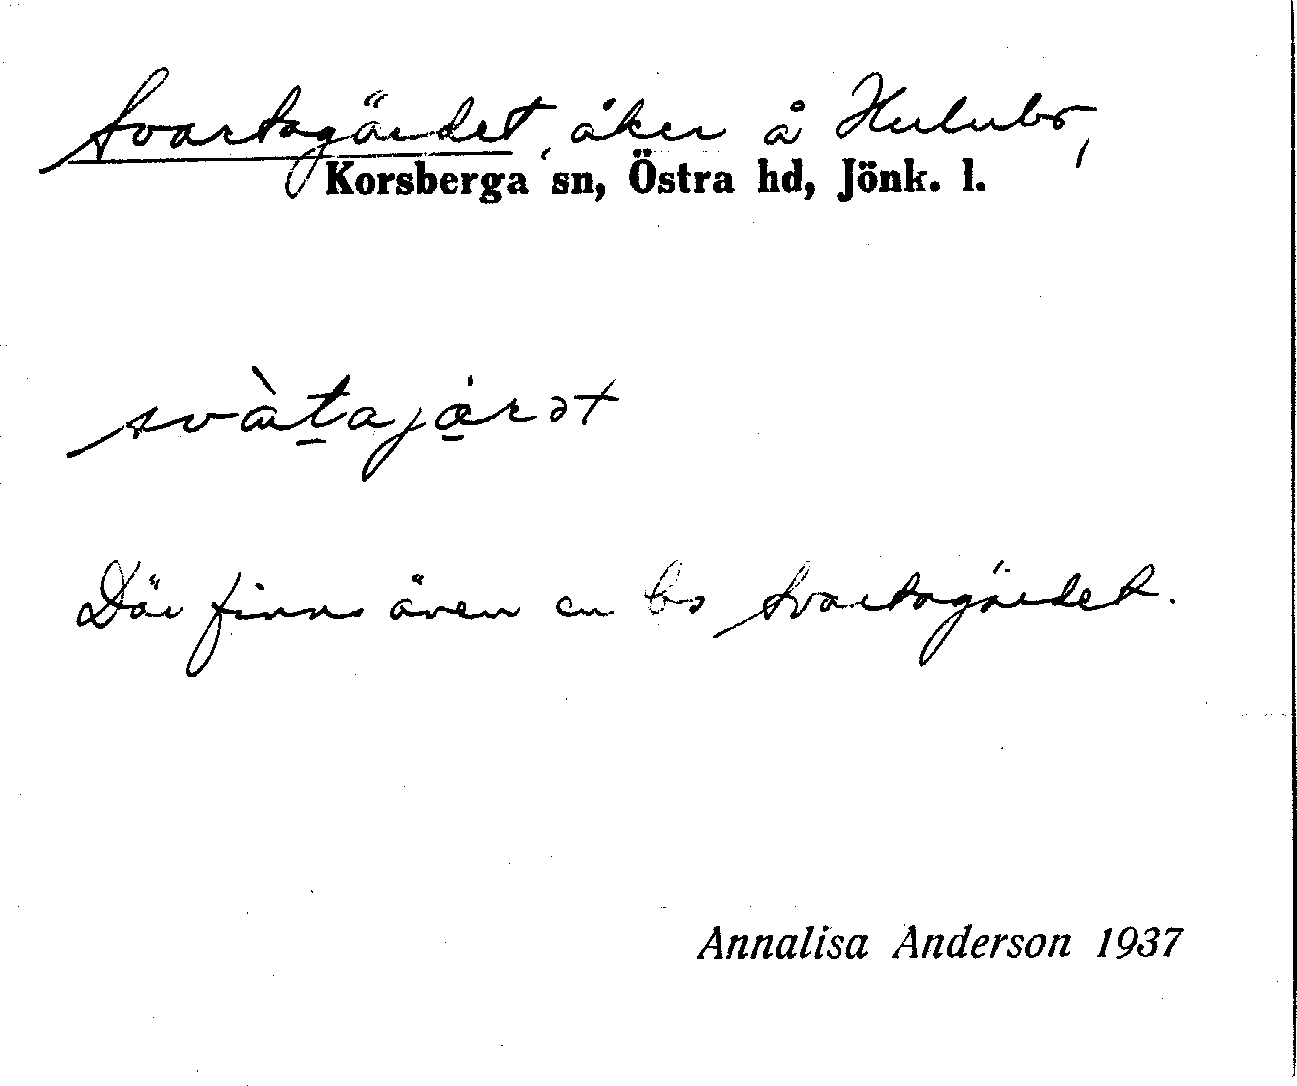 Svartagärdet, åker å Hulubo,
Korsberga sn, Östra hd, Jönk. l.
svàtajærət
Där finns även en bs Svartagärdet.
Annalisa Anderson 1937